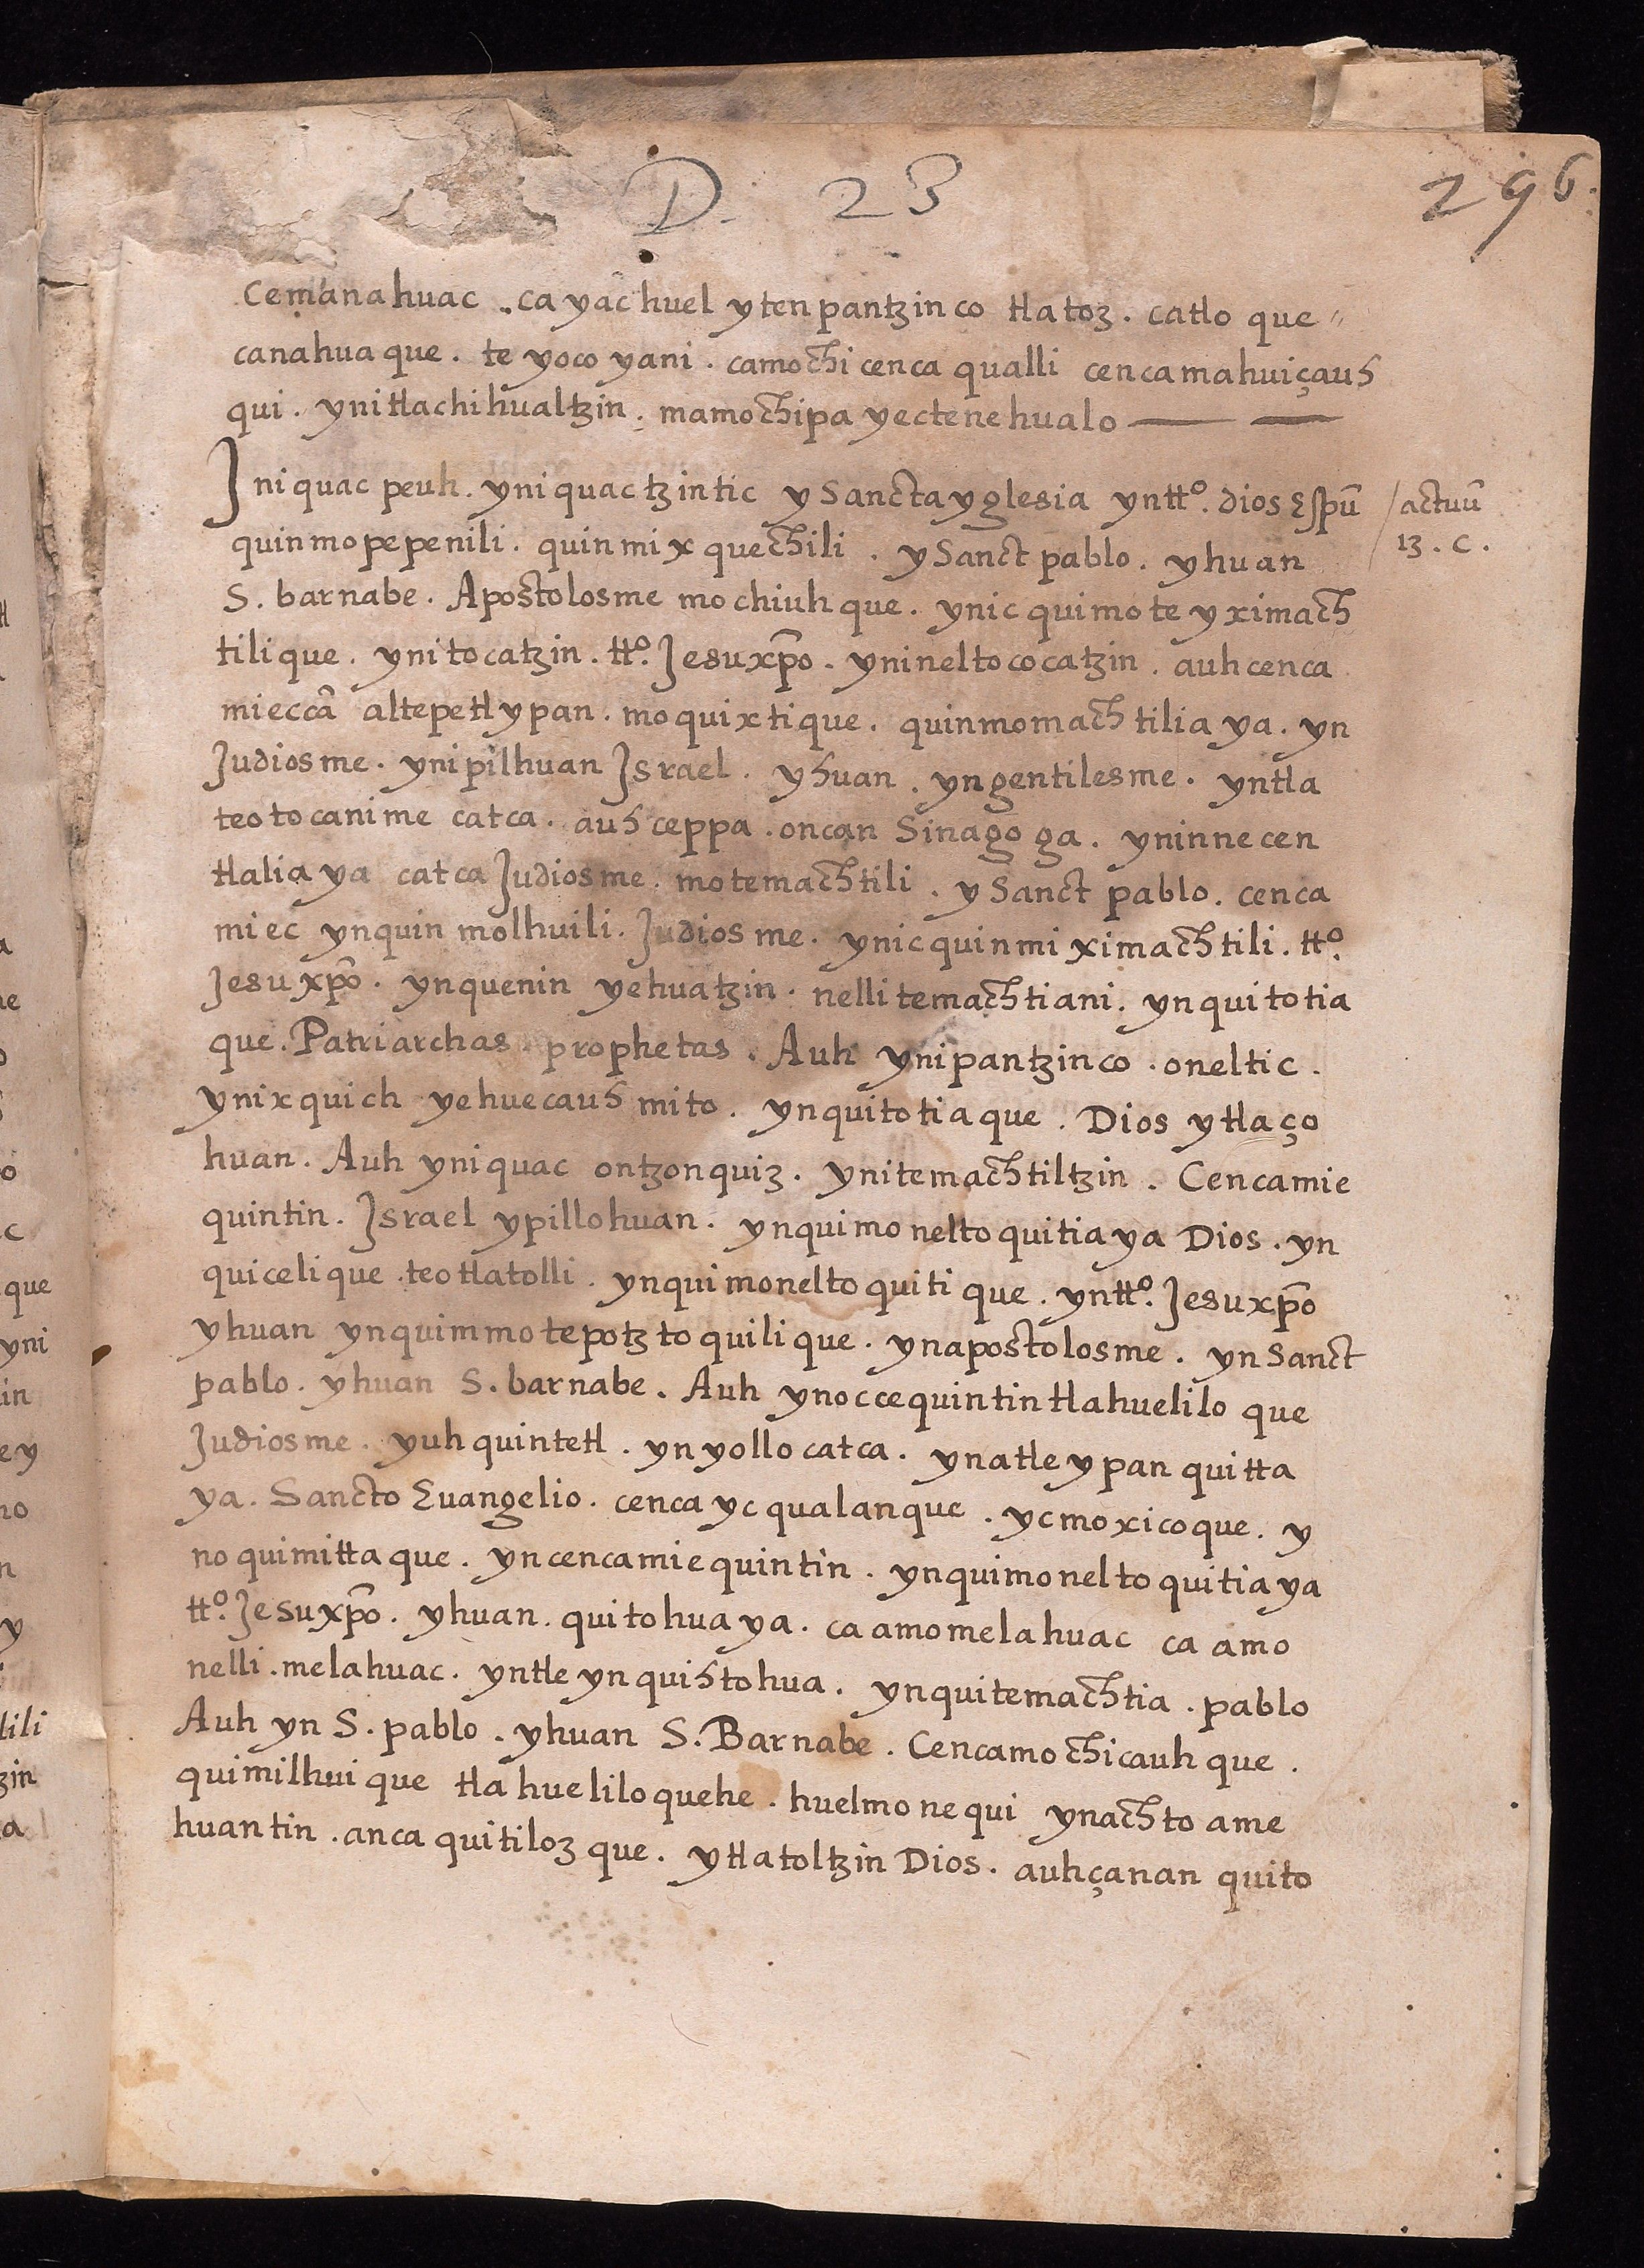 D. 23
296.
Cemanahuac . ca yac huel ytenpantzinco tlatoz . catlo que //
canahuaque . te yoco yani . camochi cenca qualli cencamahuiçauh
qui . ynitlachihualtzin . mamochipa yectenehualo
Iniquac peuh . yniquac tzintic y Sancta yglesia yntto. dios Espũ
actuũ
13 . c .
quinmopepenili . quinmixquechili . y Sanct pablo . yhuan
S. barnabe . Apostolosme mochiuhque . ynic quimoteyximach
tilique . ynitocatzin . tto. Jesuxp̃o . ynineltococatzin . auhcenca
mieccã altepetlypan . moquixtique . quinmomachtiliaya . yn
Judiosme . ynipilhuan Israel . yhuan . yngentilesme . yntla
teotocanime catca . auh ceppa . oncan Sinagoga . yninnecen
tlaliaya catca Judiosme . motemachtili . y Sanct pablo . cenca
miec ynquinmolhuili . Judiosme . ynicquinmiximachtili . tto.
Jesuxp̃o . ynquenin yehuatzin . nelli temachtiani . ynquitotia
que . Patriarchas . prophetas . Auh ynipantzinco . oneltic .
ynixquich yehuecauh mito . ynquitotiaque . Dios ytlaço
huan . Auh yniquac ontzonquiz . ynitemachtiltzin . Cencamie
quintin . Israel ypillohuan . ynquimoneltoquitiaya Dios . yn
quicelique . teotlatolli . ynquimoneltoquitique . yntto. Jesuxp̃o
yhuan ynquimmotepotztoquilique . ynapostolosme . yn Sanct
pablo . yhuan S. barnabe . Auh ynoccequintin tlahueliloque
Judiosme . yuhquintetl . ynyollo catca . ynatle ypan quitta
ya . Sancto Euangelio . cenca yc qualanque . ycmoxicoque . y
noquimittaque . yncencamiequintin . ynquimoneltoquitiaya
tto. Jesuxp̃o . yhuan . quitohuaya . ca amomelahuac ca amo
nelli . melahuac . yntle ynquihtohua . ynquitemachtia . pablo
Auh yn S. pablo . yhuan S. Barnabe . Cencamochicauhque .
quimilhuique tlahueliloquehe . huelmonequi ynachto ame
huantin . ancaquitilozque . ytlatoltzin Dios . auhçanan quito